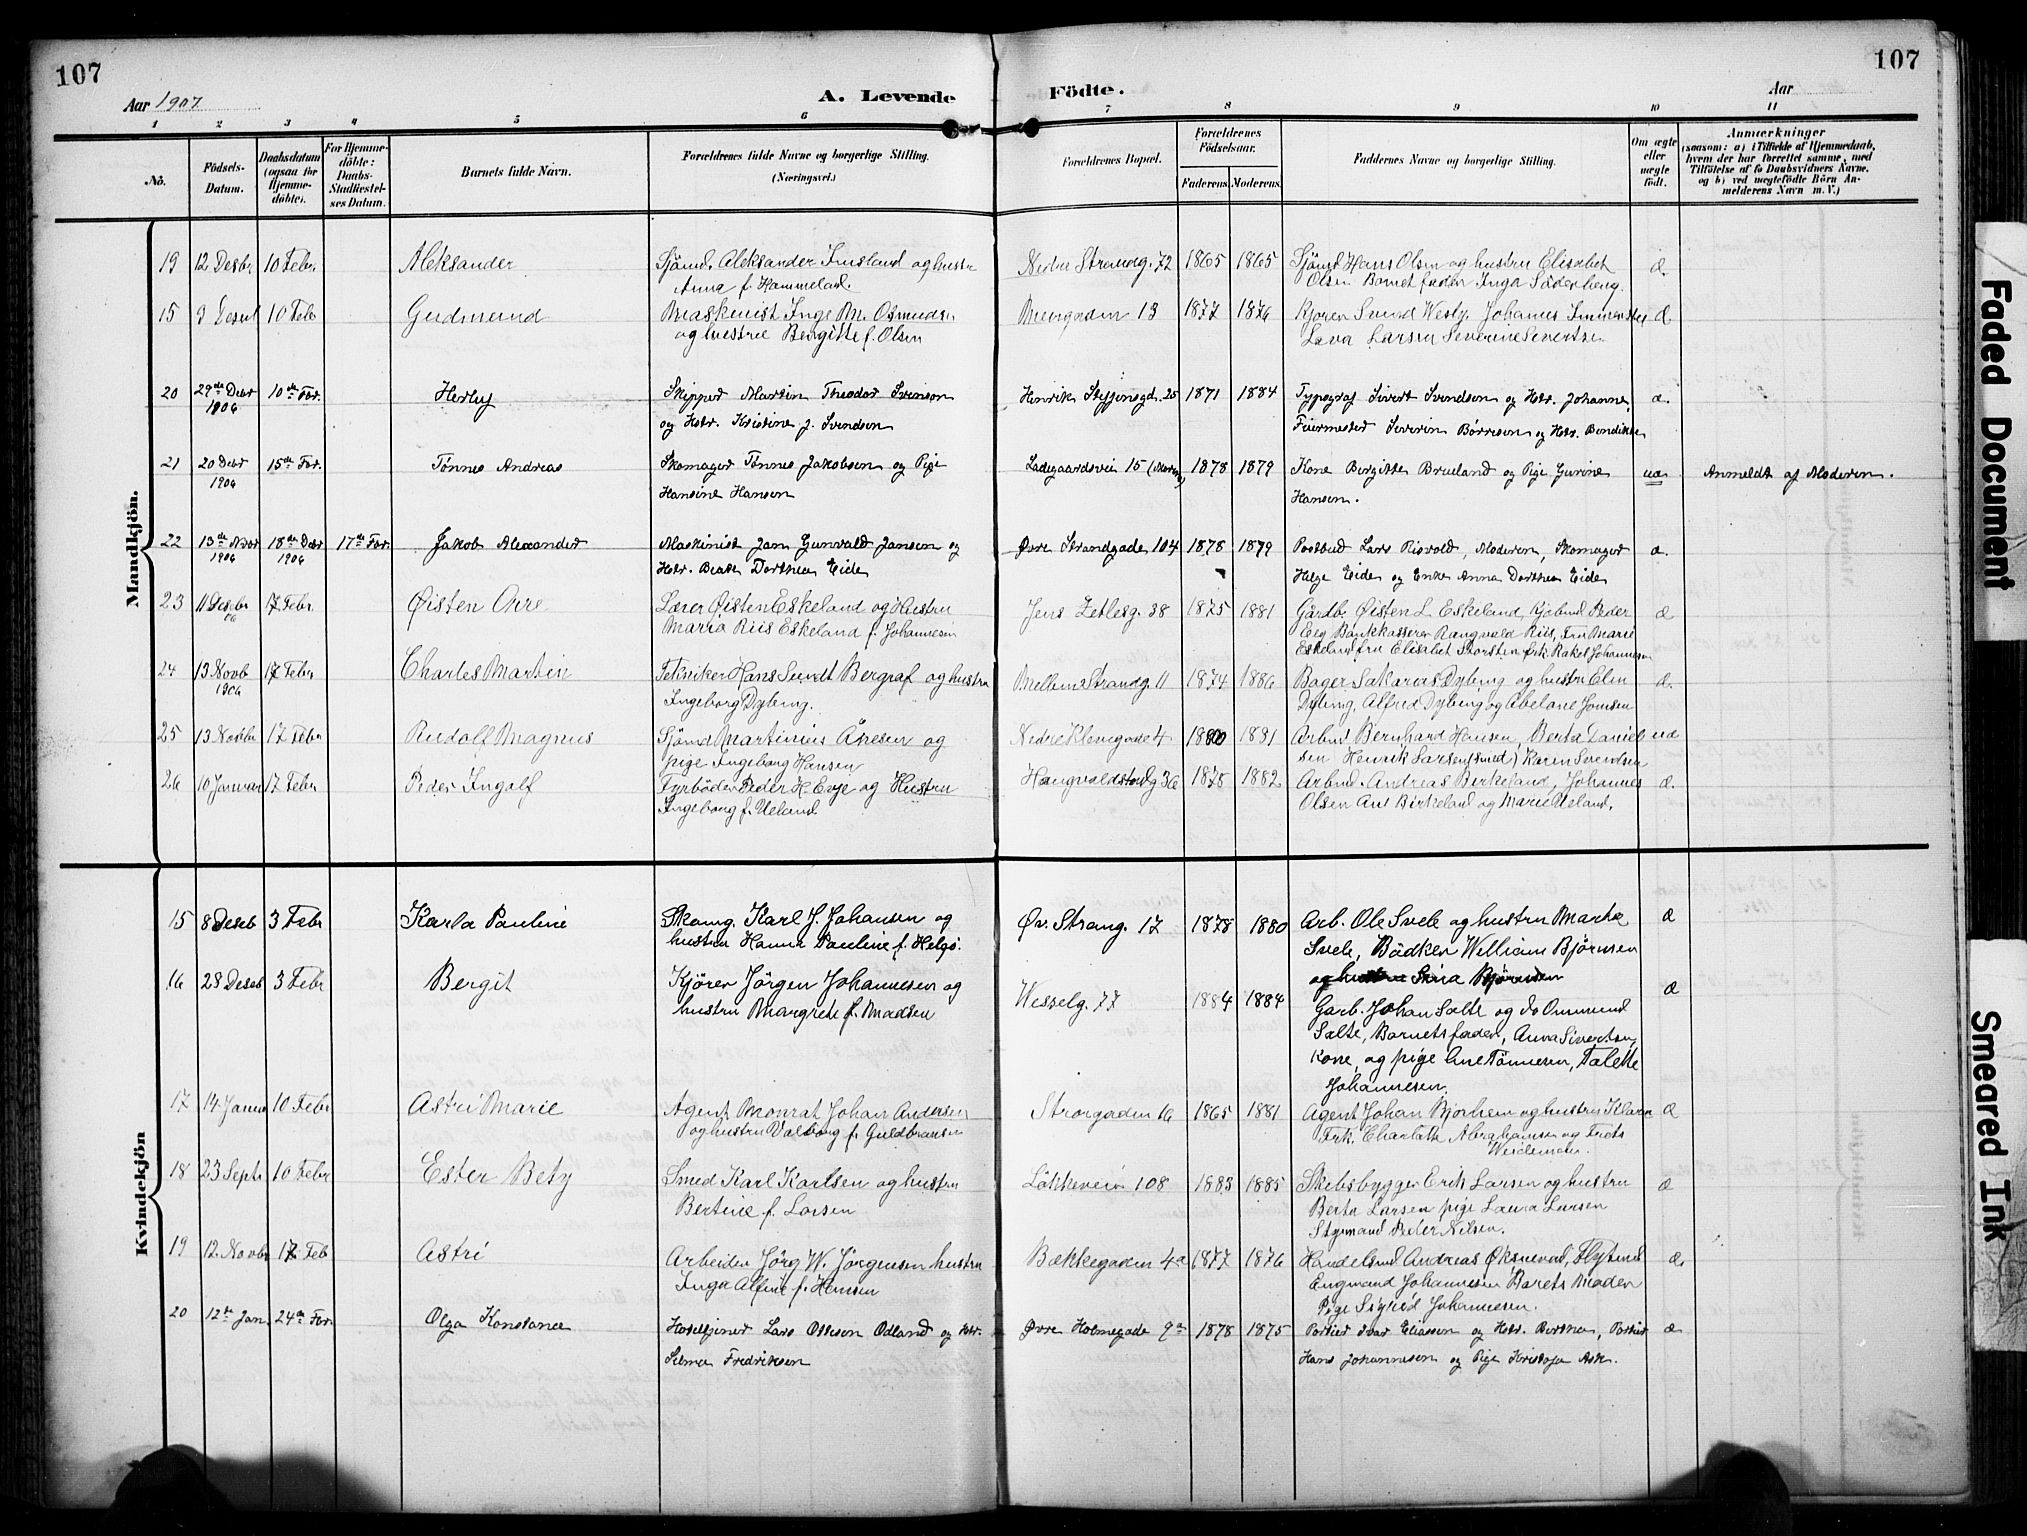 107
107
Aar 1907
A. Levende
Födte.
Aar
1 2 3 4 5 6 7 8 9 10 11
No.
Födsels-Datum.
Daabsdatum (ogsaa for Hjemme-döbte).
For Hjemme-döbte: Daabs-Stadfæstel-ses Datum.
Barnets fulde Navn.
Forældrenes fulde Navne og borgerlige Stilling. (Næringsvei.)
Forældrenes Bopæl.
Forældrenes Födselsaar.
Faderens. Moderens.
Faddernes Navne og borgerlige Stilling.
Om ægte eller uægte født.
Anmærkninger (saasom: a) i Tilfælde af Hjemmedaab, hvem der har forrettet samme, med Tilföielse af to Daabsvidners Navne, og b) ved uægtefödte Börn Anmelderens Navn m. V.)
Mandkjön.
19 12 Desbr 10 Febr Aleksander Sjömd. Aleksander Imsland og hustru Nedre Strandg. 72 1865 1865 Sjömd Hans Olsen og hustru Elisabet æ.
Anna f. Hammeland. Olsen Barnet fader Inga Søderberg.
15 9 10 Febr Gudmund Maskinist Inge M. Osmundsen 13 1877 1876 Kjörer Svend Westly Johanes æ
og hustru Bergitte f. Olsen Lava Larsen Severine Severtsen
20 29de Decbr 1906 10de Fbr. Herley Skipper Martin Theodor Svenson Henrik Steffensgd. 25 1871 1884 Typograf Sivert Svendsen og Hstr. Johanne, æ.
og Hstr. Kristine f. Svendsen Feiermester Severin Børresen og Hstr. Bendikte
21 20 Decbr 1906 15de Fbr. Tønnes Andreas Skomager Tønnes Jakobsen og Pige Ladegaardsvei 15 (Moren) 1878 1879 Kone Bergitte Brueland og Pige Gurine uæ. Anmeldt af Moderen.
Hansine Hansen Hansen.
22 13de Novbr 1906 18de Decbr 1906 17de Fbr. Jakob Alexander Maskinist Jan Gunvald Jansen og Øvre Strandgade 104 1878 1879 Postbud Lars Risvold, Moderen, Skomager æ.
Hstr. Beate Dorthea Eide Helge Eide og Enke Anna Dorthea Eide
23 11 Desbr 06 17 Febr Øisten Orre Lærer Øisten Eskeland og Hustru Jens Zetlesg. 38 1875 1881 Gårdb. Øisten L Eskeland, Kjøbmd Peder æ
Maria Riis Eskeland f. Johannesen Eeg Bankkasserer Rangvald Riis, Fru Marie
Eskeland fru Elisabet Storsten frk. Rakel Johannesen
24 13 Novb 1906 17 Febr Charles Martin Tekniker Hans Sundt Bergraf og hustru Mellem Strandg. 11 1874 1886 Bager Sakarias Dybing og hustru Elen æ.
Ingeborg Dybing. Dybing. Alfred Dybing og Abelane Jonsen
25 13 Novbr 17 Febr Rudolf Magnus Sjömd Martinius Åresen og Nedre Klevegade 4 1880 1881 Arbmd Bernhard Hansen, Berta Daniel uæ
pige Ingeborg Hansen sen Henrik Larsen (smed) Karen Svendsen
26 10 Januar 17 Febr Peder Ingolf Fyrböder Peder H. Evje og Hustru Haugvaldstadg 36 1878 1882 Arbmd. Andreas Birkeland, Johannes æ.
Ingeborg f. Ueland Olsen Ane Birkeland og Marie Ueland.
Kvindekjön
15 8 Deseb 3 Febr Karla Pauline Skomg. Karl J. Johansen og Øv. Strang. 17 1878 1880 Arb. Ole Svele og hustru Marta æ
hustru Hanna Pauline f. Helgö. Svele, Bödker William Bjørnsen
og hustru Bjørnsen
16 28 Deseb 3 Febr Bergit Kjörer Jörgen Johannesen og Wesselg. 77 1884 1884 Garb. Johan Salte og do Ommund æ
hustru Margrete f. Madsen Salte, Barnets fader, Anna Sivertsen,
Kone, og pige Ane Tönnesen, Talette
Johannesen.
17 14 Januar 10 Febr Astri Marie Agent Monrat Johan Andersen Storgaden 16 1865 1881 Agent Johan Bjorheim og hustru Klara æ
og hustru Valborg f. Guldbransen Frk. Charlotte Abrahamsen og Frøts
Weidemann.
18 23 Septr 10 Febr Ester Bety Smed Karl Karlsen og hustru Løkkevein 108 1883 1885 Skibsbygger Erik Larsen og hustru æ
Bertine f. Larsen Berta Larsen pige Laura Larsen
Styrmand Peder Nilsen.
19 12 Novbr 17 Feb Astri Arbeider Jörg W. Jörgensen hustru Bækkegaden 4a 1877 1876 Handelsmd Andreas Øksnevad, æ.
Inga Alfine f. Hansen Engmand Johannesen Barets Moder
Pige Sigrid Johannesen.
20 12te Jan. 24de Fbr. Olga Konstance Hotelfjener Lars Ottesen Odland og Hstr. Øvre Holmegade 9a 1878 1875 Portier Ivar Eliassen og Hstr. Berthea, Portier æ
Selma Fredriksen Hans Johannesen og Pige Kristofa Ask.
Faded Document
Smeared Ink